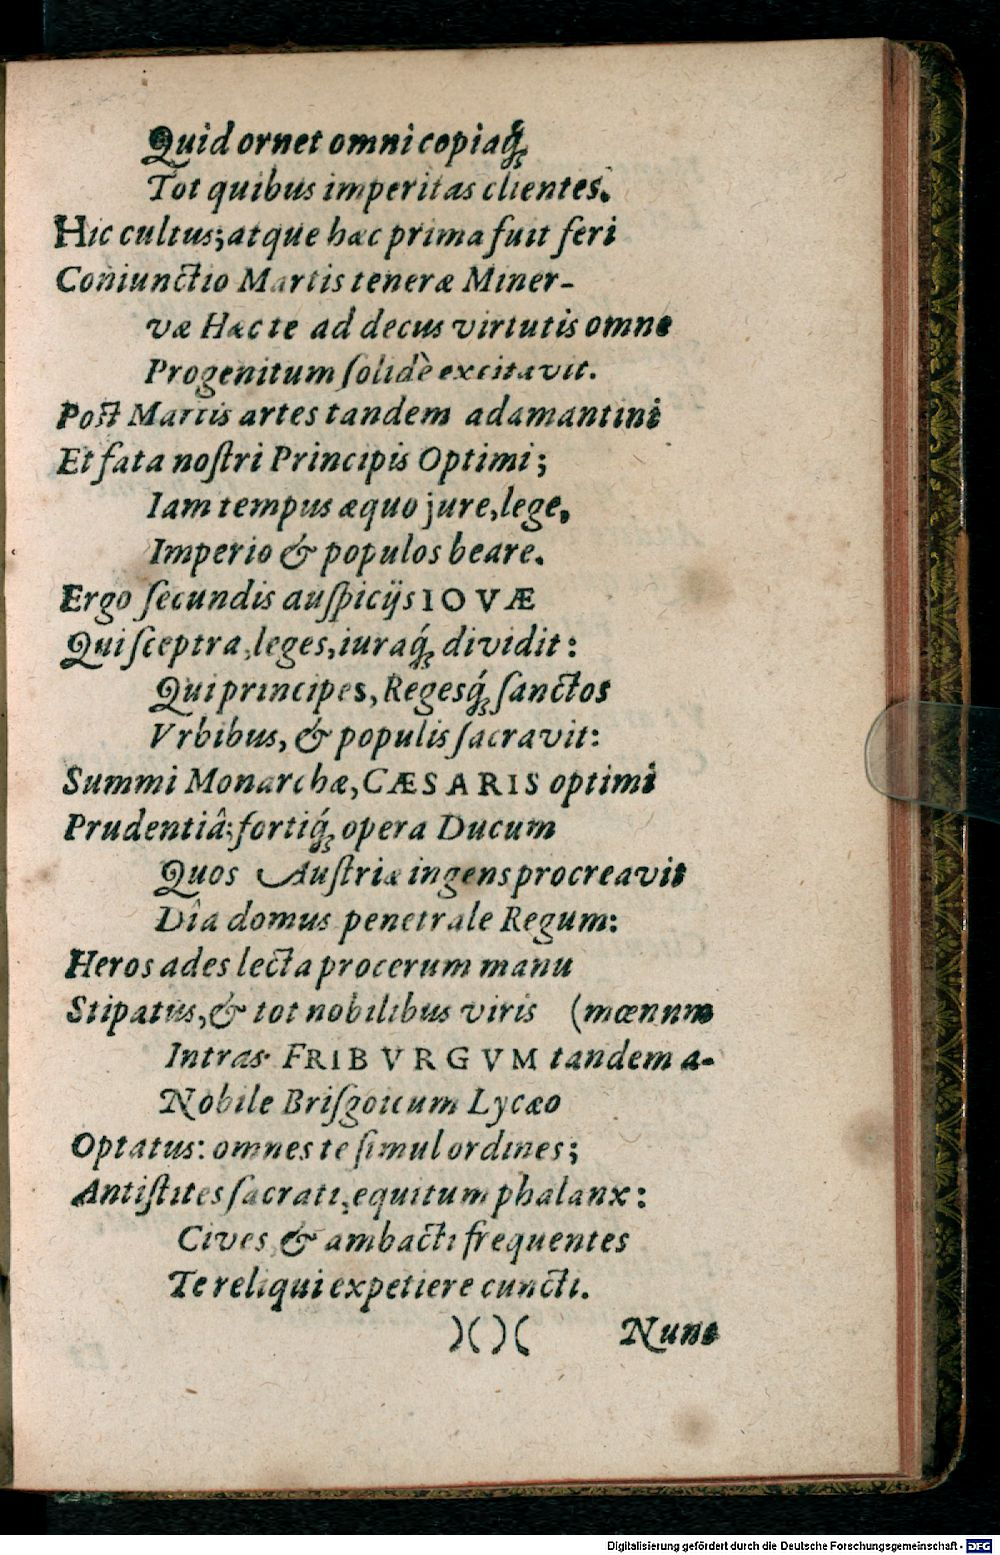 Quid ornet omni copiaq́;
Tot quibus imperitas clientes.
Hic cultus; atque hæc prima fuit feri
Coniunctio Martis teneræ Miner-
væ Hæc te ad decus virtutis omne
Progenitum ſolidè excitavit.
Poſt Martis artes tandem adamantini
Et fata noſtri Principis Optimi;
Iam tempus æquo jure, lege,
Imperio & populos beare.
Ergo ſecundis auſpicijs IOVÆ
Qui ſceptra, leges, iuraq́; dividit:
Qui principes, Regesq́; ſanctos
Vrbibus, & populis ſacravit:
Summi Monarchæ, CÆSARIS optimi
Prudentiâ: fortiq́; opera Ducum
Quos Auſtriæ ingens procreavit
Dîa domus penetrale Regum:
Heros ades lecta procerum manu
Stipatus, & tot nobilibus viris (mœnum
Intras FRIBVRGVM tandem a-
Nobile Briſgoicum Lycæo
Optatus: omnes te ſimul ordines;
Antiſtites ſacrati, equitum phalanx:
Cives & ambacti frequentes
Te reliqui expetiere cuncti.
)()( Nunc
Digitalisierung gefördert durch die Deutsche Forschungsgemeinschaft - DFG